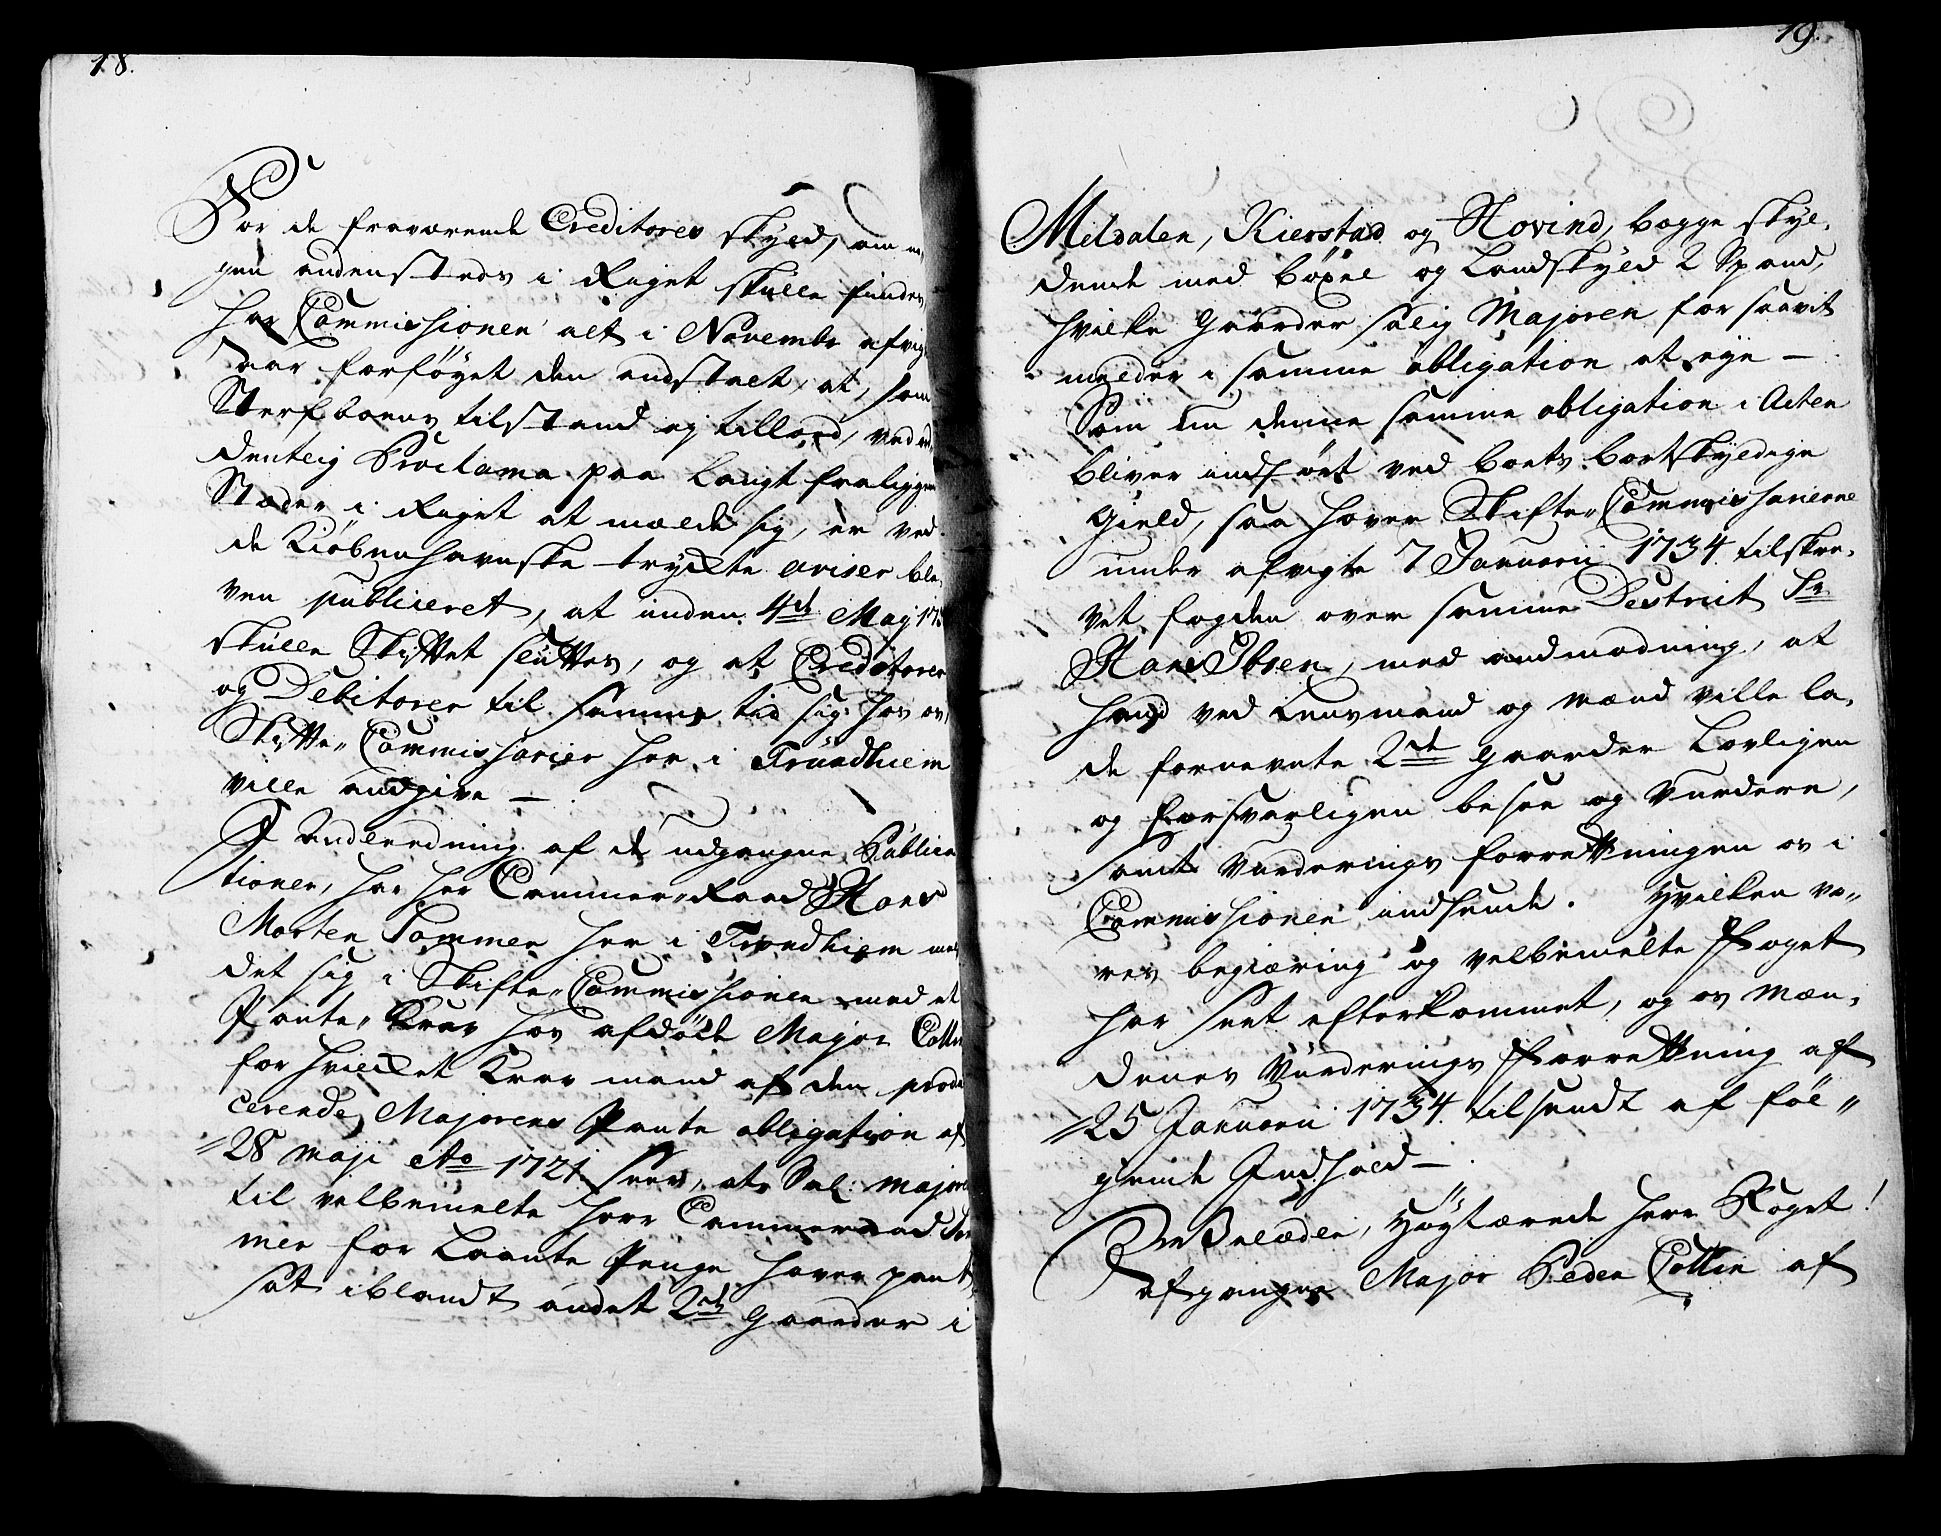 18.
For de fraværende Creditores skyld, om no,
gen andensteds i Riget skulle findes,
har Commissionen alt i Novembr afvigte
aar forføyet den andstalt, at, som
Sterfboens tilstand ej tillod, ved or,
dentlig Proclama paa langt fraliggen
Stæder i Riget at melde sig, er ved
de Kiöbenhavnske tryckte aviser ble,
ven publiceret, at inden 4de Maj 173
skulle Skiftet sluttes, og at Creditorer
og Debitorer til samme tid sig hos os
Skifte Commissarier her i Trundhiem
ville andgive —
I Anledning af de udgangne Publica
tioner, har her Cammer-Raad Hans
Morten Sommer her i Trondhiem mel
det sig i Skifte-Commissionen med et
Pante-Krav hos afdöde Major Collin
for hvilket Krav mand af den produ
cerende Majorens Pante obligation af
28 maji Ao 1721 seer, at Sal: majoren
til velbemelte herr Cammerraad Som
mer for Laante Penge haver pant,
sat iblandt andet 2de gaarder i
19.
Meldalen, Kierstad og Hovind, begge skyl,
dende med böxel og Landskyld 2 Spand,
hvilke Gaarder salig Majoren for saavit
melder i samme obligation at eye —
Som nu denne samme obligation i Acten
bliver indfört ved boets bortskyldige
Gield, saa haver Skifte-Commissarierne
under afvigte 7 Januarii 1734 tilskre,
vet fogden over samme Destrict Sr.
Hans Ibsen, med andmodning, at
hand ved Lensmand og mænd ville la,
de fornevnte 2de gaarder Lovligen
og forsvarligen besee og Vurdere,
samt Vurderings forretningen os i
Commissionen indsende. Hvilken vo,
res begiæring og velbemelte Foget
har seet efterkommet, og os Mæn,
denes Vurderings Forretning af
25 Januarii 1734 tilsendt af föl,
gende Indhold —
höytærede Herr Foget!
afgangne Major Peder Collin af